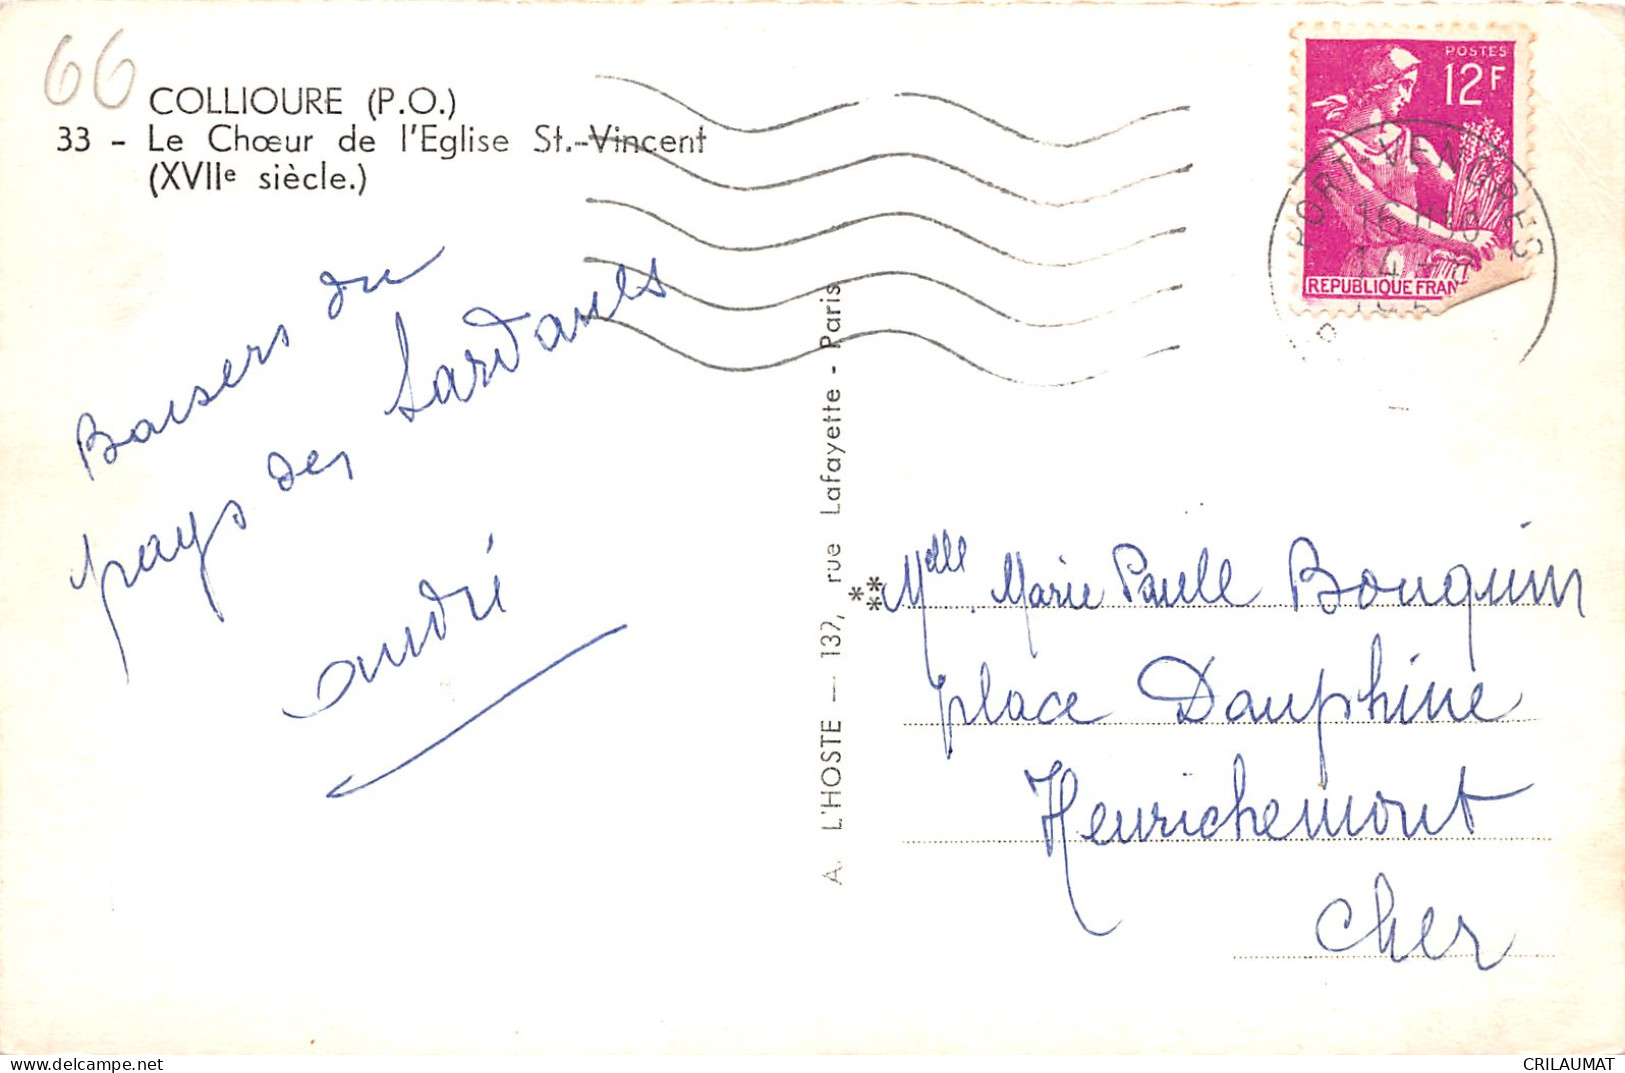 66
COLLIOURE (P.O.)
33 - Le Chœur de l'Eglise St.-Vincent
(XVIIe siècle.)
Baisers du
pays des Sardanes
andré
A. L'HOSTE — 137, rue Lafayette - Paris
POSTES
12F
REPUBLIQUE FRAN
PORT-VENDRES
16H30
14 -
Mdlle. Marie Paule Bouquin
place Dauphine
Henrichemont
Cher
delcampe.net
CRILAUMAT